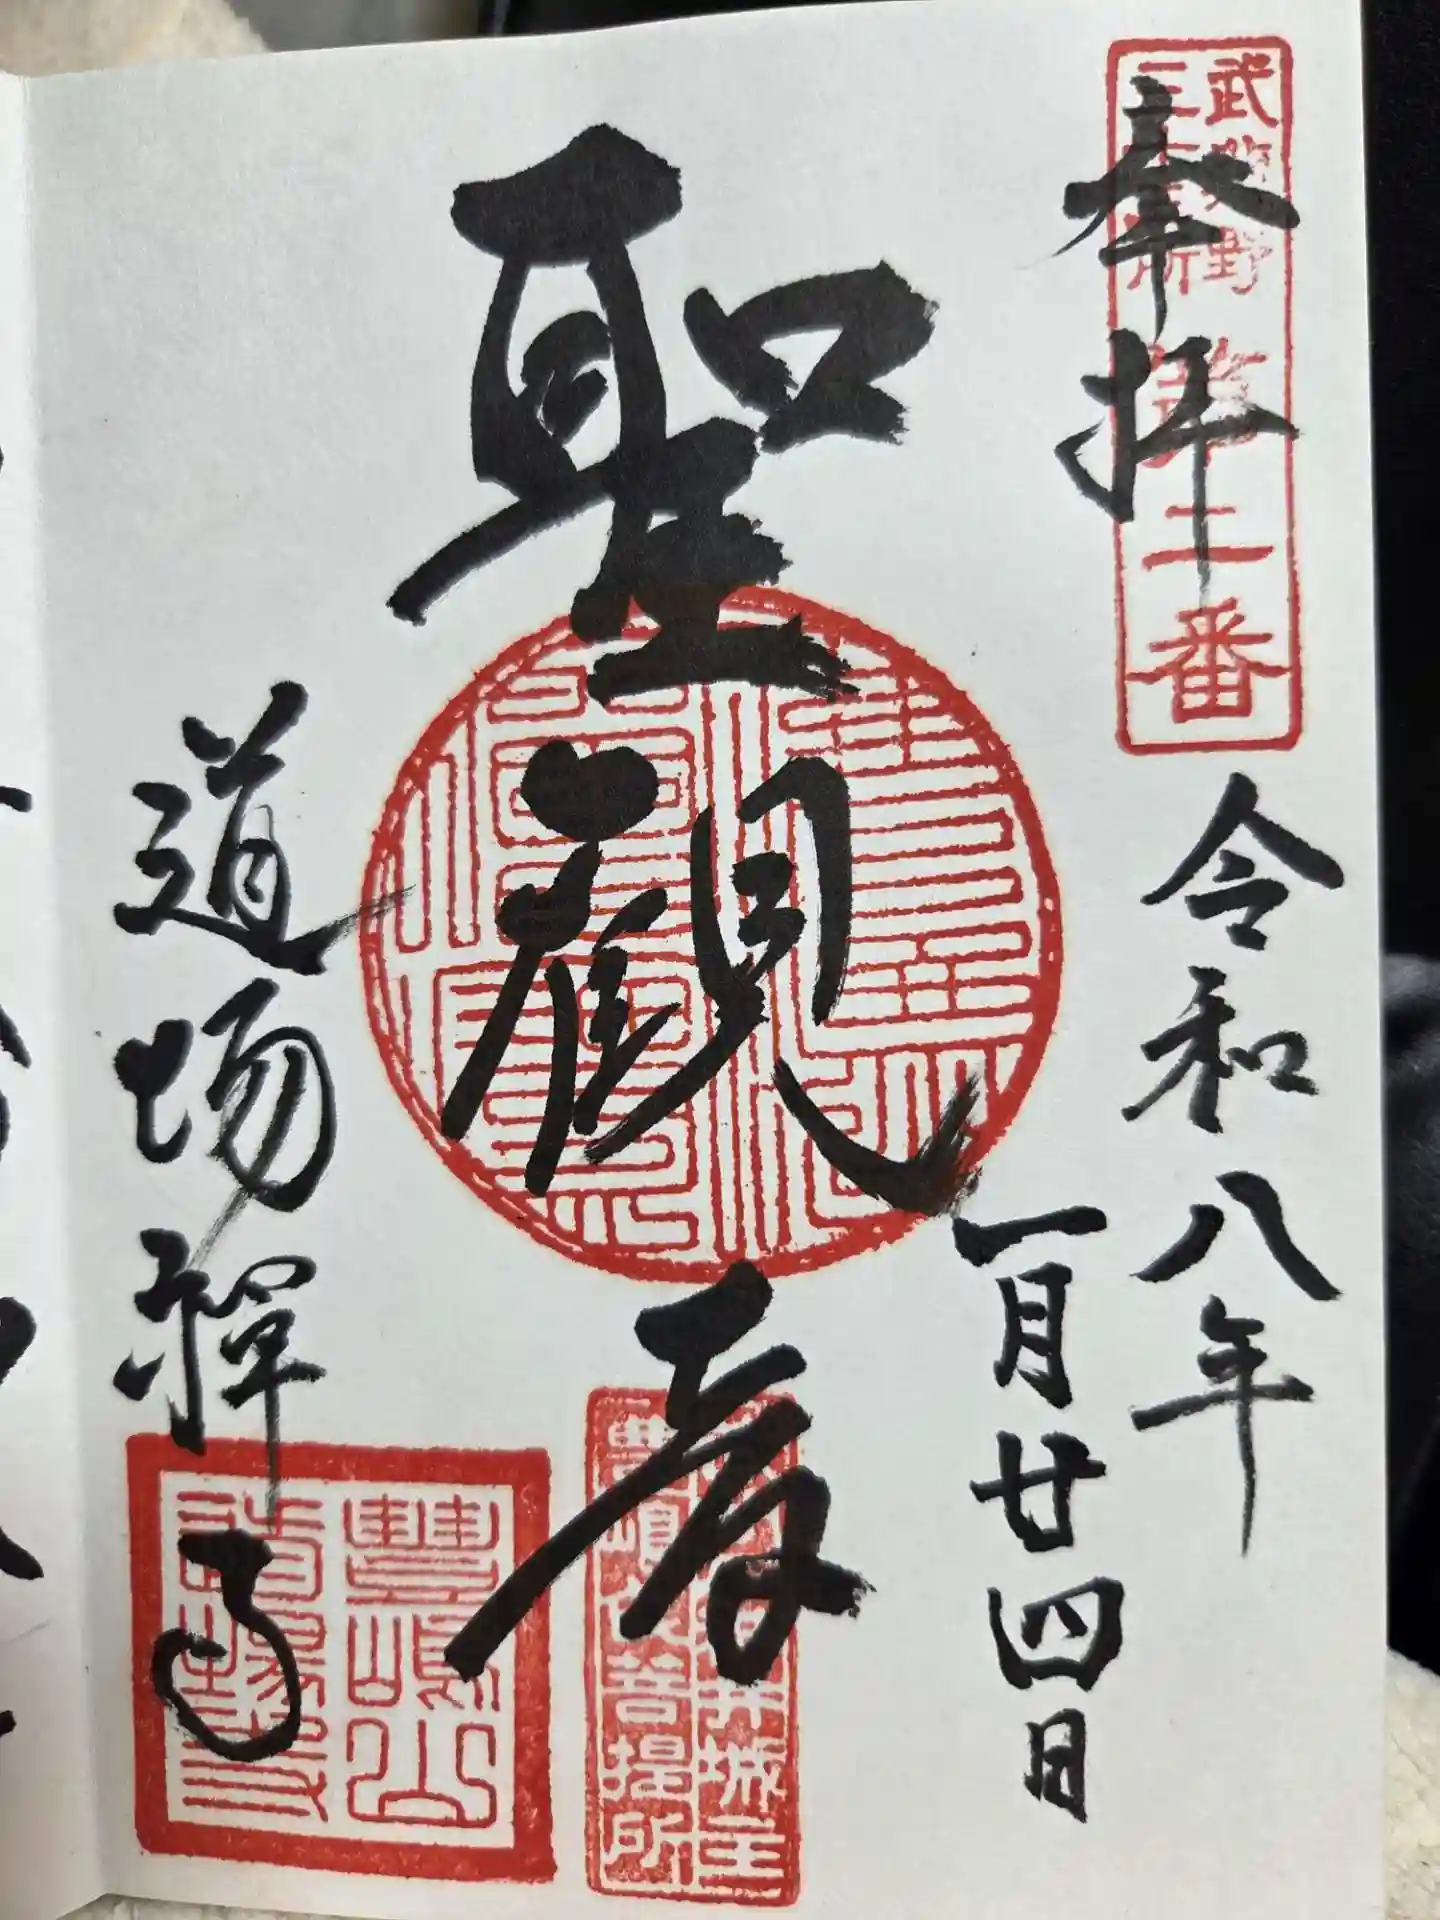 武蔵野
三十三所
第二番
奉拝
令和八年
一月廿四日
聖観音
道場禅寺
豊嶋山
道場寺
豊嶋氏菩提所